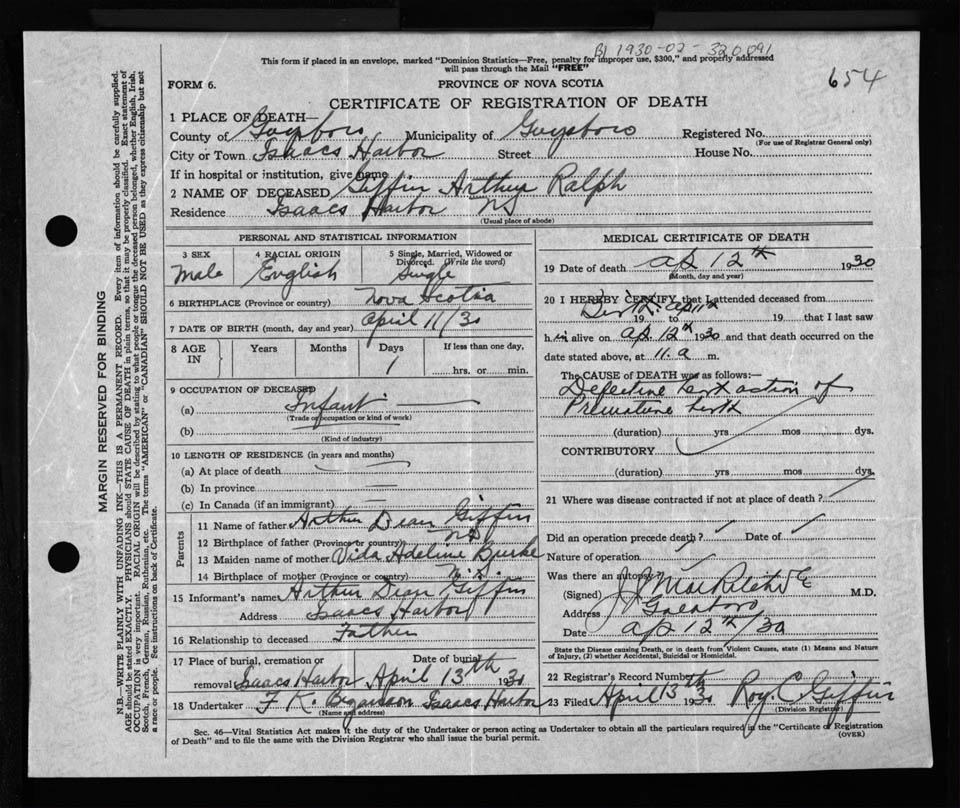 B1 1930-02-320091
This form if placed in an envelope, marked "Dominion Statistics—Free, penalty for improper use, $300," and properly addressed
will pass through the Mail "FREE"
654
FORM 6.
PROVINCE OF NOVA SCOTIA
CERTIFICATE OF REGISTRATION OF DEATH
1 PLACE OF DEATH—
County of Guysboro Municipality of Guysboro Registered No.
(For use of Registrar General only)
City or Town Isaacs Harbor Street House No.
If in hospital or institution, give name
2 NAME OF DECEASED Giffin Arthur Ralph
Residence Isaacs Harbor NS
(Usual place of abode)
PERSONAL AND STATISTICAL INFORMATION
3 SEX 4 RACIAL ORIGIN 5 Single, Married, Widowed or
Divorced. (Write the word)
Male English Single
6 BIRTHPLACE (Province or country) Nova Scotia
7 DATE OF BIRTH (month, day and year) April 11/30
8 AGE IN Years Months Days If less than one day,
1 hrs. or min.
9 OCCUPATION OF DECEASED
(a) Infant
(Trade occupation or kind of work)
(b)
(Kind of industry)
10 LENGTH OF RESIDENCE (in years and months)
(a) At place of death
(b) In province
(c) In Canada (if an immigrant)
Parents
11 Name of father Arthur Dean Giffin
12 Birthplace of father (Province or country) NS
13 Maiden name of mother Vida Adeline Burke
14 Birthplace of mother (Province or country) N.S.
15 Informant's name Arthur Dean Giffin
Address Isaacs Harbor
16 Relationship to deceased Father
17 Place of burial, cremation or Date of burial
removal Isaacs Harbor April 13th 1930
18 Undertaker F. K. Isaacs Harbor
(Name and address)
MEDICAL CERTIFICATE OF DEATH
19 Date of death Ap 12th 1930
(Month, day and year)
20 I HEREBY CERTIFY that I attended deceased from
Birth. Ap 11th 19 to 19 that I last saw
h im alive on Ap. 12th 1930 and that death occurred on the
date stated above, at 11. a m.
The CAUSE of DEATH was as follows:—
Defective of
Premature birth
(duration) yrs mos dys.
CONTRIBUTORY
(duration) yrs mos dys.
21 Where was disease contracted if not at place of death?
Did an operation precede death? Date of
Nature of operation
Was there an autopsy?
(Signed) M.D.
Address Goldboro
Date Ap 12th/30
State the Disease causing Death, or in death from Violent Causes, state (1) Means and Nature
of Injury, (2) whether Accidental, Suicidal or Homicidal.
22 Registrar's Record Number
23 Filed April 13th 1930 Roy C Giffin
(Division Registrar)
Sec. 46—Vital Statistics Act makes it the duty of the Undertaker or person acting as Undertaker to obtain all the particulars required in the "Certificate of Registration
of Death" and to file the same with the Division Registrar who shall issue the burial permit.
(OVER)
MARGIN RESERVED FOR BINDING
N.B.—WRITE PLAINLY WITH UNFADING INK—THIS IS A PERMANENT RECORD. Every item of information should be carefully supplied.
AGE should be stated EXACTLY. PHYSICIANS should STATE CAUSE OF DEATH in plain terms, so that it may be properly classified. Exact statement of
OCCUPATION is very important. RACIAL ORIGIN will be described by stating to what people or tongue the deceased person belonged, whether English, Irish,
Scotch, French, German, Russian, Ruthenian, etc. The terms "AMERICAN" or "CANADIAN" SHOULD NOT BE USED as they express citizenship but not
a race or people. See instructions on back of Certificate.